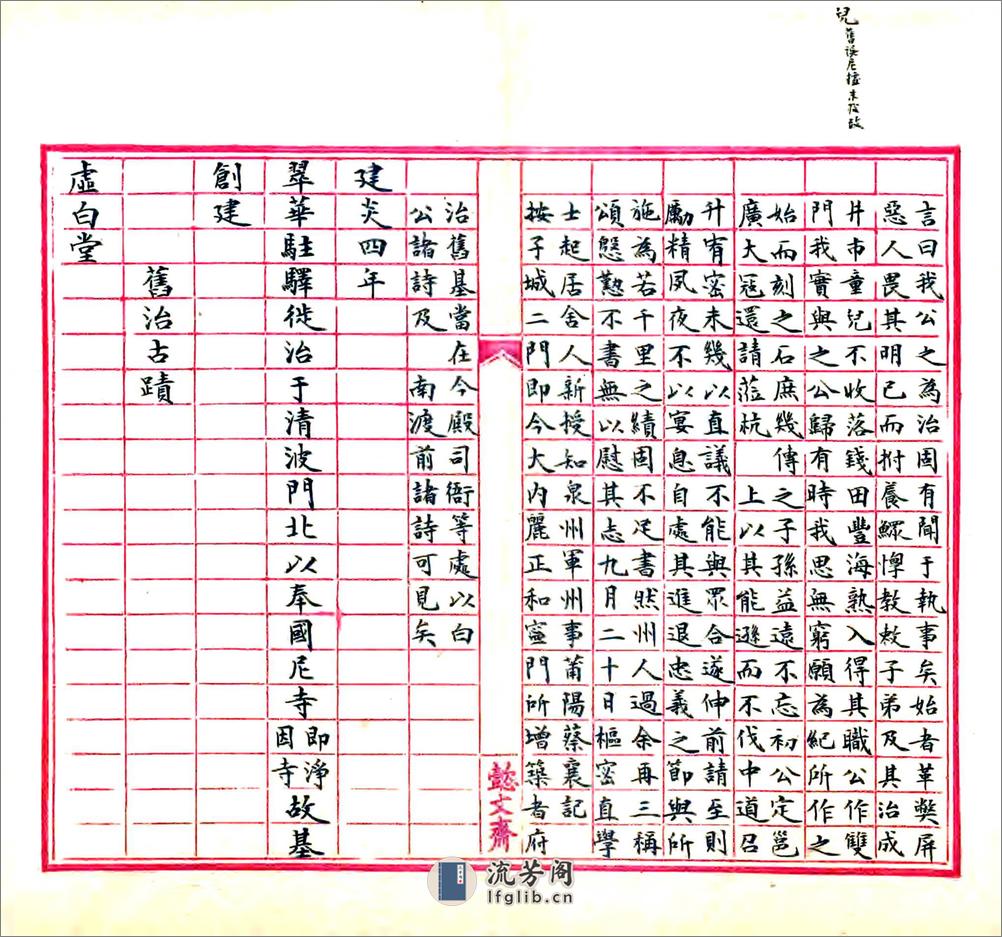 兒舊誤尼據改
言曰我公之為治固有聞于執事矣始者革獘屏
惡人畏其明已而拊養鰥惸教敕子弟及其治成
井市童兒不收落錢田豐海熟入得其職公作雙
門我實與之公歸有時我思無窮願為紀所作之
始而刻之石庶幾傳之子孫益遠不忘初公定邕
廣大寇還請蒞杭 上以其能遜而不伐中道召
升宥密未幾以直議不能與眾合遂伸前請至則
勵精夙夜不以宴息自處其進退忠義之節與所
施為若千里之績固不足書然州人過余再三稱
頌慇懃不書無以慰其志九月二十日樞密直學
士起居舍人新授知泉州軍州事莆陽蔡襄記
按子城二門即今大內麗正和寧門所增築者府
懿文齋
治舊基當在今殿司衙等處以白
公諸詩及南渡前諸詩可見矣
建炎四年
翠華駐驛徙治于清波門北以奉國尼寺即淨因寺故基
創建
舊治古蹟
虛白堂
流芳阁
lfglib.cn